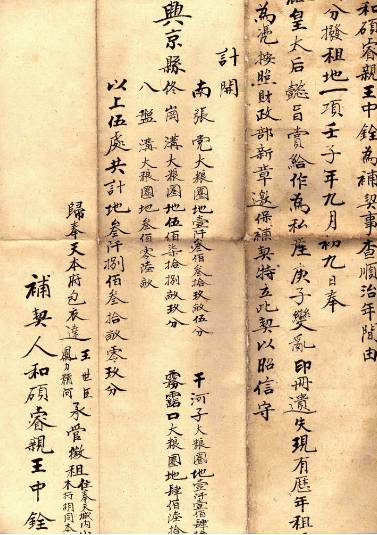 和碩睿親王中銓為補契事查順治年間由
分撥租地一項壬子年九月初九日奉
皇太后懿旨賞給作為私產庚子變亂印冊遺失現有歷年租
為憑按照財政部新章邀保補契特立此契以照信守
計開
南張党大粮圈地壹仟叁佰叁拾玖畝伍分 干河子大粮圈地壹仟壹佰肆拾
興京縣佟崗溝大粮圈地伍佰柒拾捌畝玖分 霧露口大粮圈地肆佰陸拾
八盤溝大粮圈地叁佰零陸畝
以上伍處共計地叁仟捌佰叁拾畝零玖分
歸奉天本府包衣達 王世臣 承管徵租 住奉天城内
補契人和碩睿親王中銓